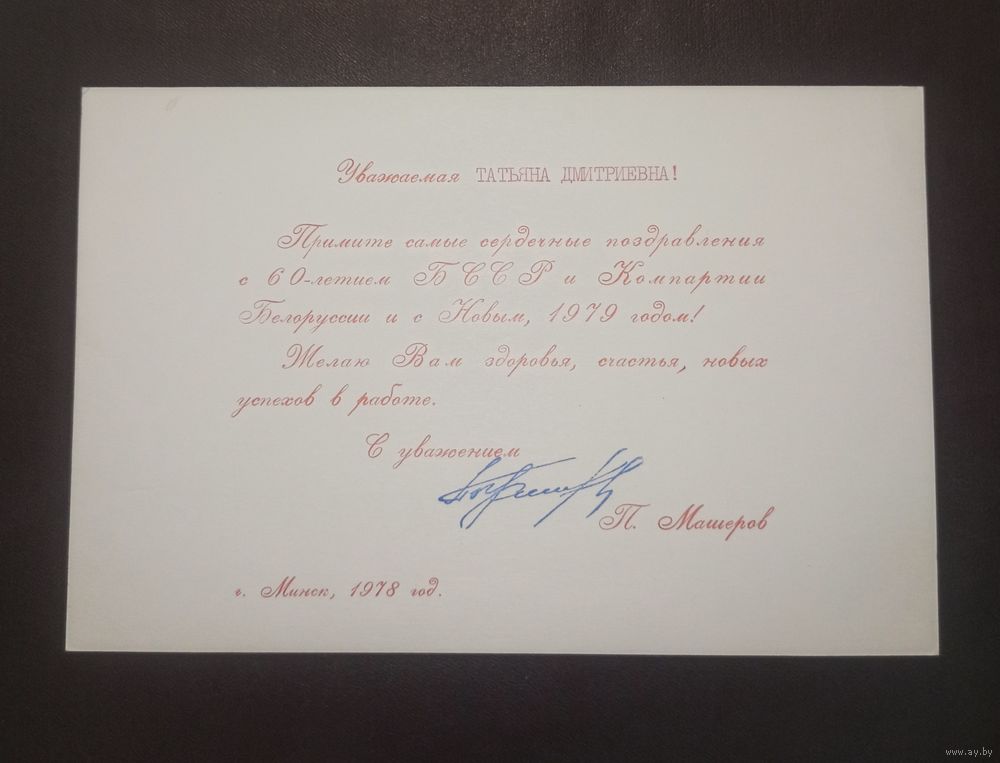 Уважаемая ТАТЬЯНА ДМИТРИЕВНА!
Примите самые сердечные поздравления
с 60-летием БССР и Компартии
Белоруссии и с Новым, 1979 годом!
Желаю Вам здоровья, счастья, новых
успехов в работе.
С уважением
П. Машеров
г. Минск, 1978 год.
www.ay.by